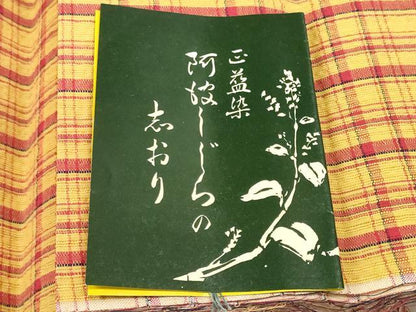 正藍染
阿波しじらの
志おり